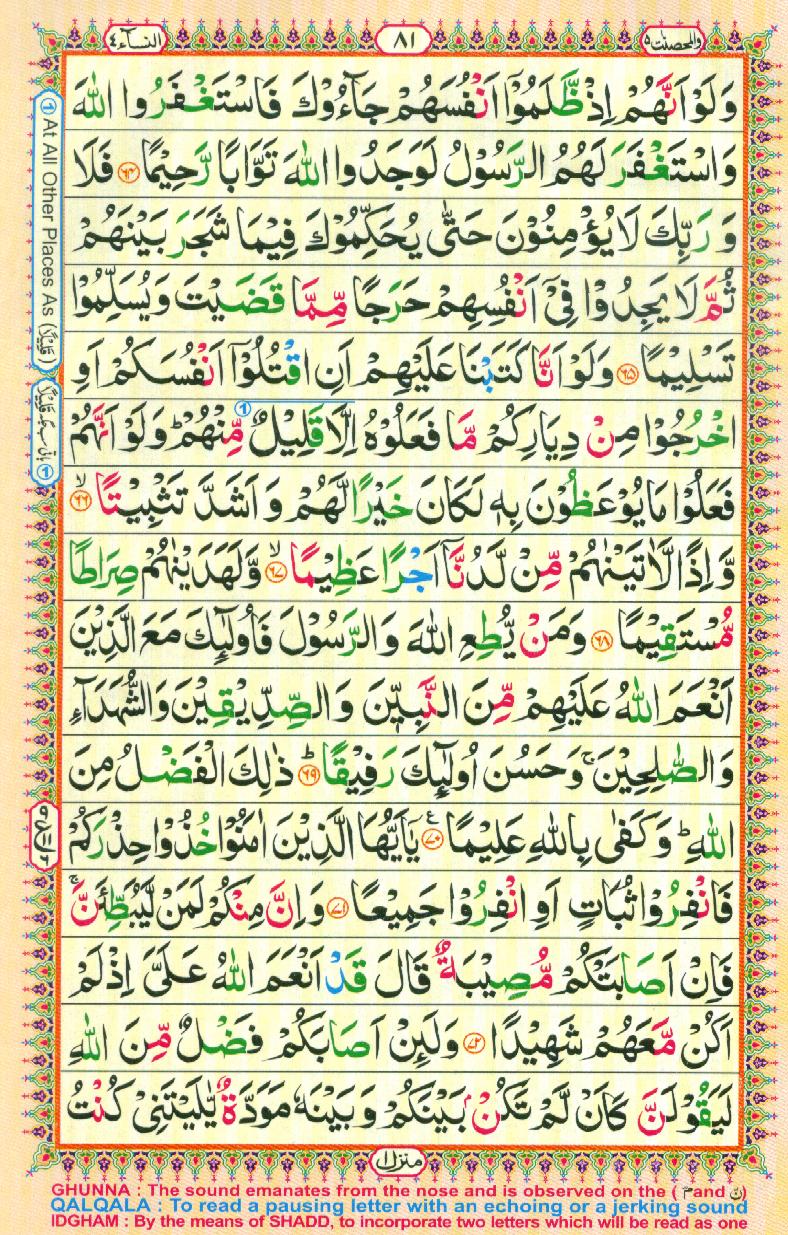 النساء ٤
٨١
والمحصنت ٥
وَلَوْ اَنَّهُمْ اِذْ ظَّلَمُوْۤا اَنْفُسَهُمْ جَآءُوْكَ فَاسْتَغْفَرُوا اللّٰهَ
وَاسْتَغْفَرَ لَهُمُ الرَّسُوْلُ لَوَجَدُوا اللّٰهَ تَوَّابًا رَّحِيْمًا ﴿۶۴﴾ فَلَا
وَ رَبِّكَ لَا يُؤْمِنُوْنَ حَتّٰى يُحَكِّمُوْكَ فِيْمَا شَجَرَ بَيْنَهُمْ
ثُمَّ لَا يَجِدُوْا فِىْۤ اَنْفُسِهِمْ حَرَجًا مِّمَّا قَضَيْتَ وَيُسَلِّمُوْا
تَسْلِيْمًا ﴿۶۵﴾ وَلَوْ اَنَّا كَتَبْنَا عَلَيْهِمْ اَنِ اقْتُلُوْۤا اَنْفُسَكُمْ اَوِ
اخْرُجُوْا مِنْ دِيَارِكُمْ مَّا فَعَلُوْهُ اِلَّا قَلِيْلٌ مِّنْهُمْ ؕ وَلَوْ اَنَّهُمْ
فَعَلُوْا مَا يُوْعَظُوْنَ بِهٖ لَكَانَ خَيْرًا لَّهُمْ وَ اَشَدَّ تَثْبِيْتًا ۙ﴿۶۶﴾
وَّ اِذًا لَّاٰتَيْنٰهُمْ مِّنْ لَّدُنَّاۤ اَجْرًا عَظِيْمًا ۙ﴿۶۷﴾ وَّلَهَدَيْنٰهُمْ صِرَاطًا
مُّسْتَقِيْمًا ﴿۶۸﴾ وَمَنْ يُّطِعِ اللّٰهَ وَالرَّسُوْلَ فَاُولٰٓئِكَ مَعَ الَّذِيْنَ
اَنْعَمَ اللّٰهُ عَلَيْهِمْ مِّنَ النَّبِيّٖنَ وَالصِّدِّيْقِيْنَ وَالشُّهَدَآءِ
وَالصّٰلِحِيْنَ ۚ وَحَسُنَ اُولٰٓئِكَ رَفِيْقًا ؕ﴿۶۹﴾ ذٰلِكَ الْفَضْلُ مِنَ
اللّٰهِ ؕ وَكَفٰى بِاللّٰهِ عَلِيْمًا ﴿۷۰﴾ يٰۤاَيُّهَا الَّذِيْنَ اٰمَنُوْا خُذُوْا حِذْرَكُمْ
فَانْفِرُوْا ثُبَاتٍ اَوِ انْفِرُوْا جَمِيْعًا ﴿۷۱﴾ وَاِنَّ مِنْكُمْ لَمَنْ لَّيُبَطِّئَنَّ ۚ
فَاِنْ اَصَابَتْكُمْ مُّصِيْبَةٌ قَالَ قَدْ اَنْعَمَ اللّٰهُ عَلَىَّ اِذْ لَمْ
اَكُنْ مَّعَهُمْ شَهِيْدًا ﴿۷۲﴾ وَلَئِنْ اَصَابَكُمْ فَضْلٌ مِّنَ اللّٰهِ
لَيَقُوْلَنَّ كَاَنْ لَّمْ تَكُنْۢ بَيْنَكُمْ وَ بَيْنَهٗ مَوَدَّةٌ يّٰلَيْتَنِىْ كُنْتُ
① At All Other Places As (قَلِيْلًا)
منزل ١
GHUNNA : The sound emanates from the nose and is observed on the ( م and ن)
QALQALA : To read a pausing letter with an echoing or a jerking sound
IDGHAM : By the means of SHADD, to incorporate two letters which will be read as one